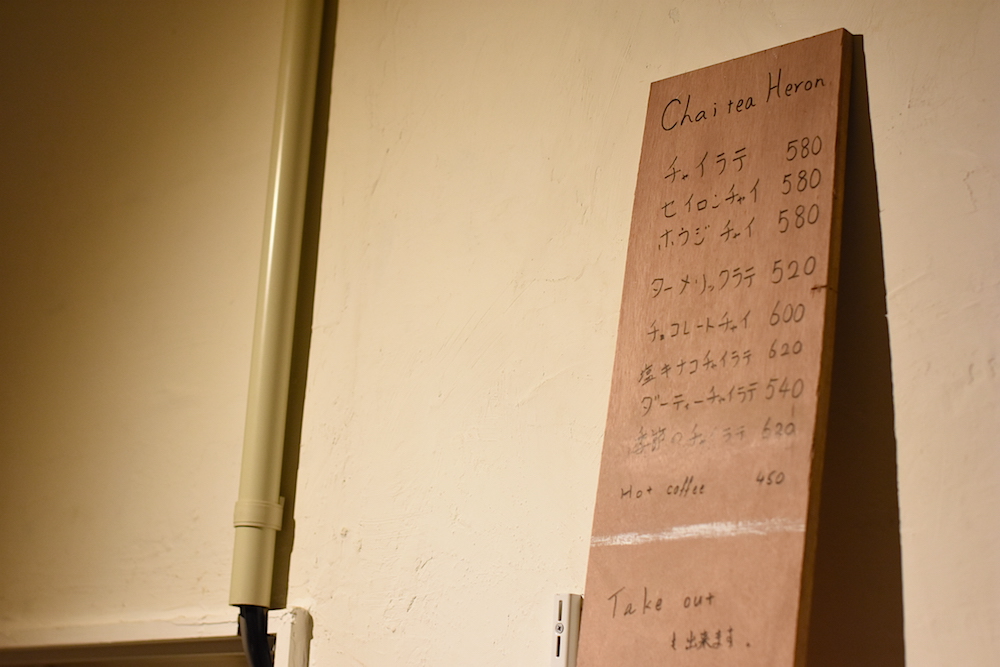 Chai tea Heron
チャイラテ 580
セイロンチャイ 580
ホウジチャイ 580
ターメリックラテ 520
チョコレートチャイ 600
塩キナコチャイラテ 620
ダーティーチャイラテ 540
季節のチャイラテ 620
Hot coffee 450
Take out
も出来ます.